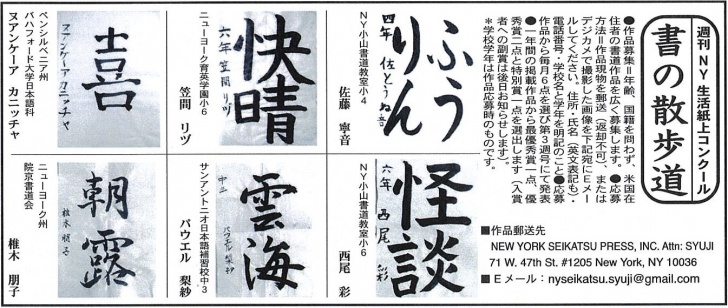 週刊NY生活紙上コンクール
書の散歩道
●作品募集＝年齢、国籍を問わず、米国在
住者の書道作品を広く募集します。●応募
方法＝作品現物を郵送（返却不可）、または
デジカメで撮影した画像を下記宛にEメー
ルしてください。住所・氏名（英文表記も）・
電話番号・学校名と学年を明記のこと●応募
作品から毎月6点を選び第3週号にて発表
●一年間の掲載作品から最優秀賞一点、優
秀賞二点と特別賞一点を選出します（入賞
者への副賞は後日お知らせします）。
＊学校学年は作品応募時のものです。
■作品郵送先
NEW YORK SEIKATSU PRESS, INC. Attn: SYUJI
71 W. 47th St. #1205 New York, NY 10036
■Eメール：nyseikatsu.syuji@gmail.com
ふう
りん
四年 佐とうね音
NY小山書道教室小4
佐藤 寧音
快晴
六年 笠間リヅ
ニューヨーク育英学園小6
笠間 リヅ
喜
ヌアンケーアカニッチャ
ペンシルベニア州
ハバフォード大学日本語科
ヌアンケーア カニッチャ
怪談
六年 西尾彩
NY小山書道教室小6
西尾 彩
雲海
中三 パウエル梨紗
サンアントニオ日本語補習校中3
パウエル 梨紗
朝露
椎木朋子
ニューヨーク州
院京書道会
椎木 朋子